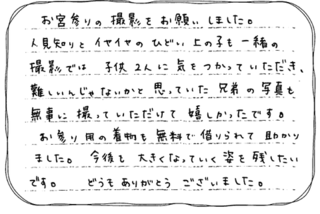 お宮参りの撮影をお願いしました。
人見知りとイヤイヤのひどい上の子も一緒の
撮影では 子供2人に気をつかっていただき、
難しいんじゃないかと思っていた兄弟の写真も
無事に撮っていただけて嬉しかったです。
お参り用の着物も無料で借りられて助かり
ました。今後も大きくなっていく姿を残したい
です。 どうもありがとうございました。